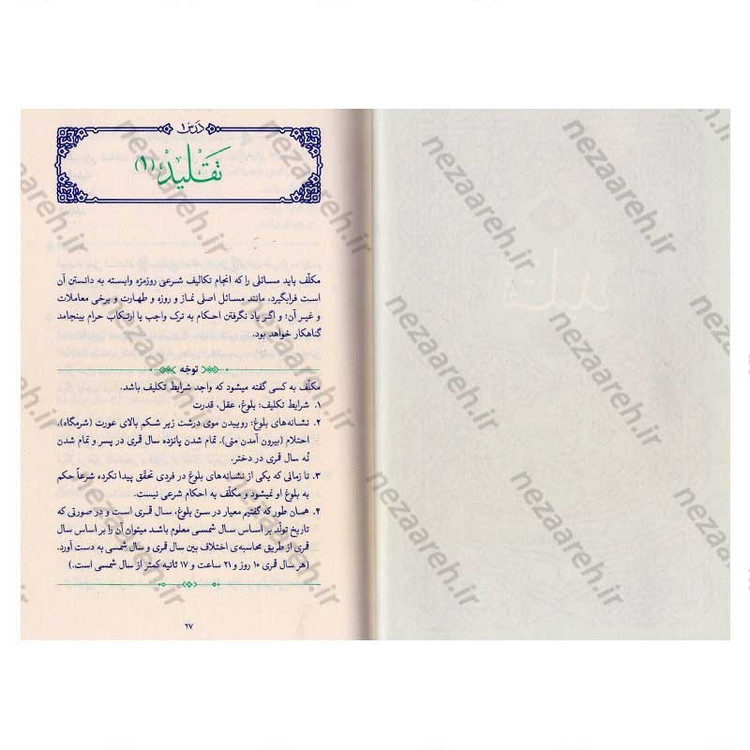 درس ۱
تَقْلیدْ (۱)
مکلّف باید مسائلی را که انجام تکالیف شرعی روزمرّه وابسته به دانستن آن
است فرابگیرد، مانند مسائل اصلی نماز و روزه و طهارت و برخی معاملات
و غیر آن؛ و اگر یاد نگرفتن احکام به ترک واجب یا ارتکاب حرام بینجامد
گناهکار خواهد بود.
توجّه
مکلّف به کسی گفته میشود که واجد شرایط تکلیف باشد.
۱. شرایط تکلیف: بلوغ، عقل، قدرت
۲. نشانه‌های بلوغ: روییدن موی درشت زیر شکم بالای عورت (شرمگاه)،
احتلام (بیرون آمدن منی)، تمام شدن پانزده سال قمری در پسر و تمام شدن
نُه سال قمری در دختر.
۳. تا زمانی که یکی از نشانه‌های بلوغ در فردی تحقّق پیدا نکرده شرعاً حکم
به بلوغ او نمیشود و مکلّف به احکام شرعی نیست.
۴. همان طور که گفتیم معیار در سنّ بلوغ، سال قمری است و در صورتی که
تاریخ تولّد بر اساس سال شمسی معلوم باشد میتوان آن را بر اساس سال
قمری از طریق محاسبه‌ی اختلاف بین سال قمری و سال شمسی به دست آورد.
(هر سال قمری ۱۰ روز و ۲۱ ساعت و ۱۷ ثانیه کمتر از سال شمسی است.)
۲۷
nezaareh.ir